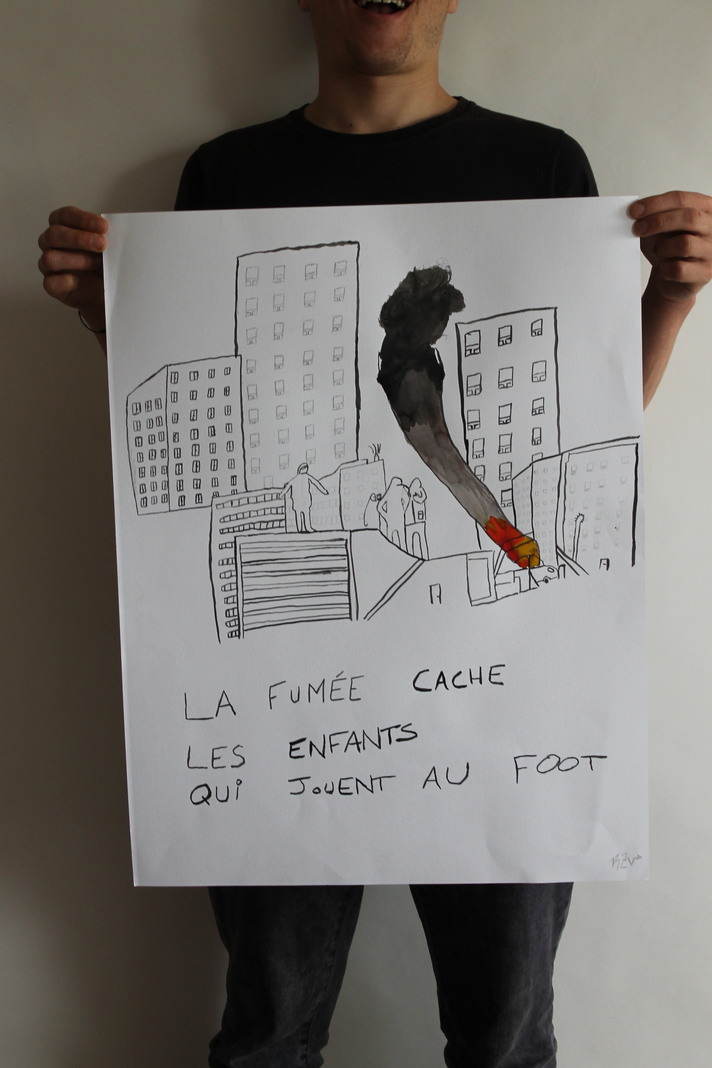 LA FUMÉE CACHE
LES ENFANTS
QUI JOUENT AU FOOT